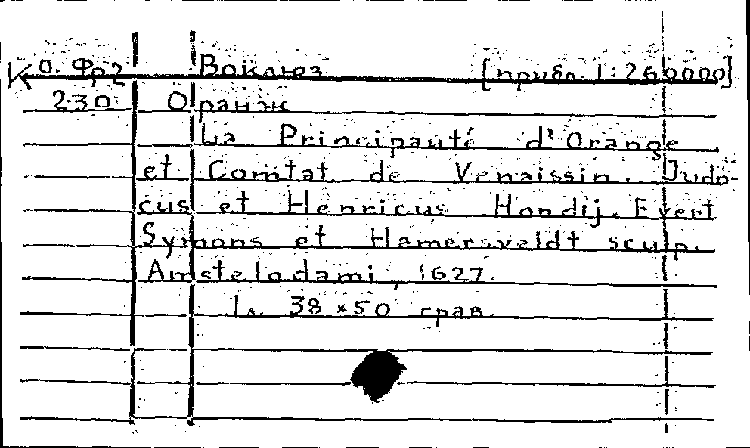 К о. Фр2 Воклюз [прибл. 1:260000]
2-30 Оранж
La Principauté d'Orange
et Comtat de Venaissin. Judo-
cus et Henricus Hondij. Evert
Symons et Hamersveldt sculp.
Amstelodami, 1627.
1 л. 38×50 грав.